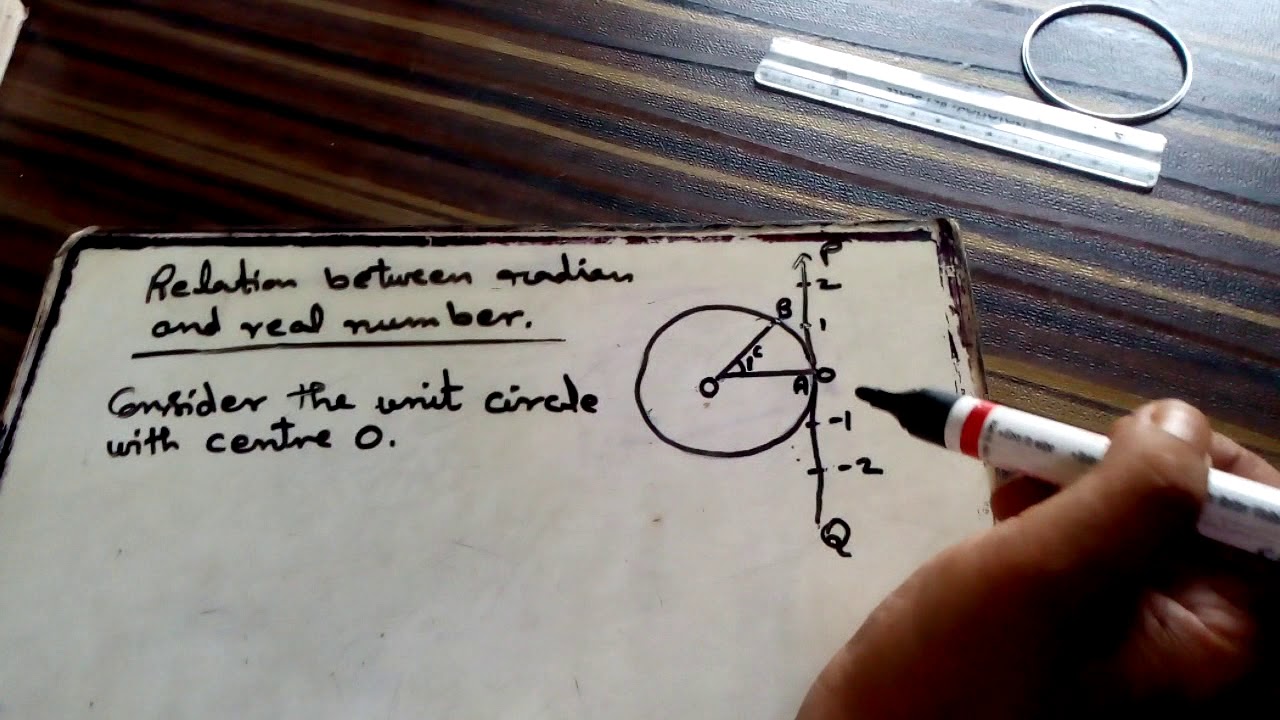 Relation between radian
and real number.
Consider the unit circle
with centre O.
P
2
B
1
1ᶜ
O
A
0
-1
-2
Q